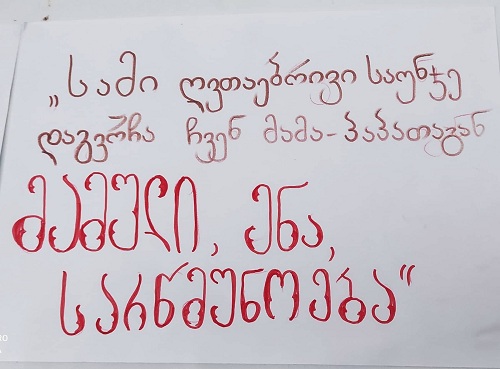 „სამი ღვთაებრივი საუნჯე
დაგვრჩა ჩვენ მამა-პაპათაგან
მამული, ენა,
სარწმუნოება“